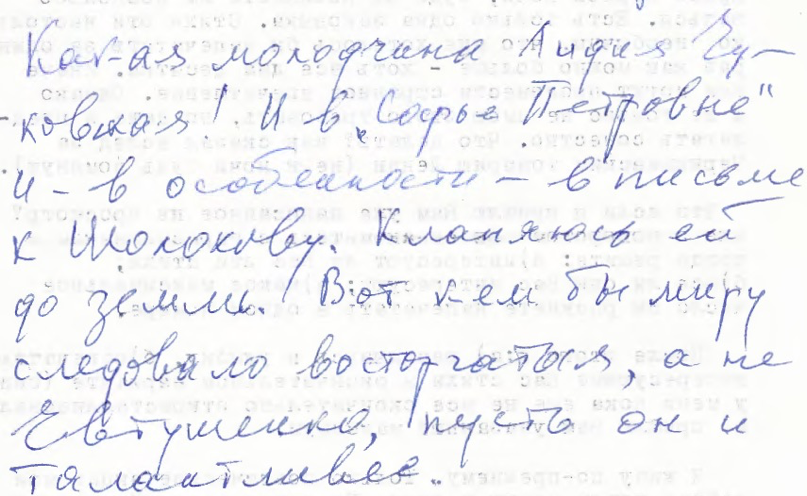 Какая молодчина Лидия Чу-
ковская! И в „Софье Петровне"
и – в особенности – в письме
к Шолохову. Кланяюсь ей
до земли. Вот кем бы миру
следовало восторгаться, а не
Евтушенко, пусть он и
талантливее.